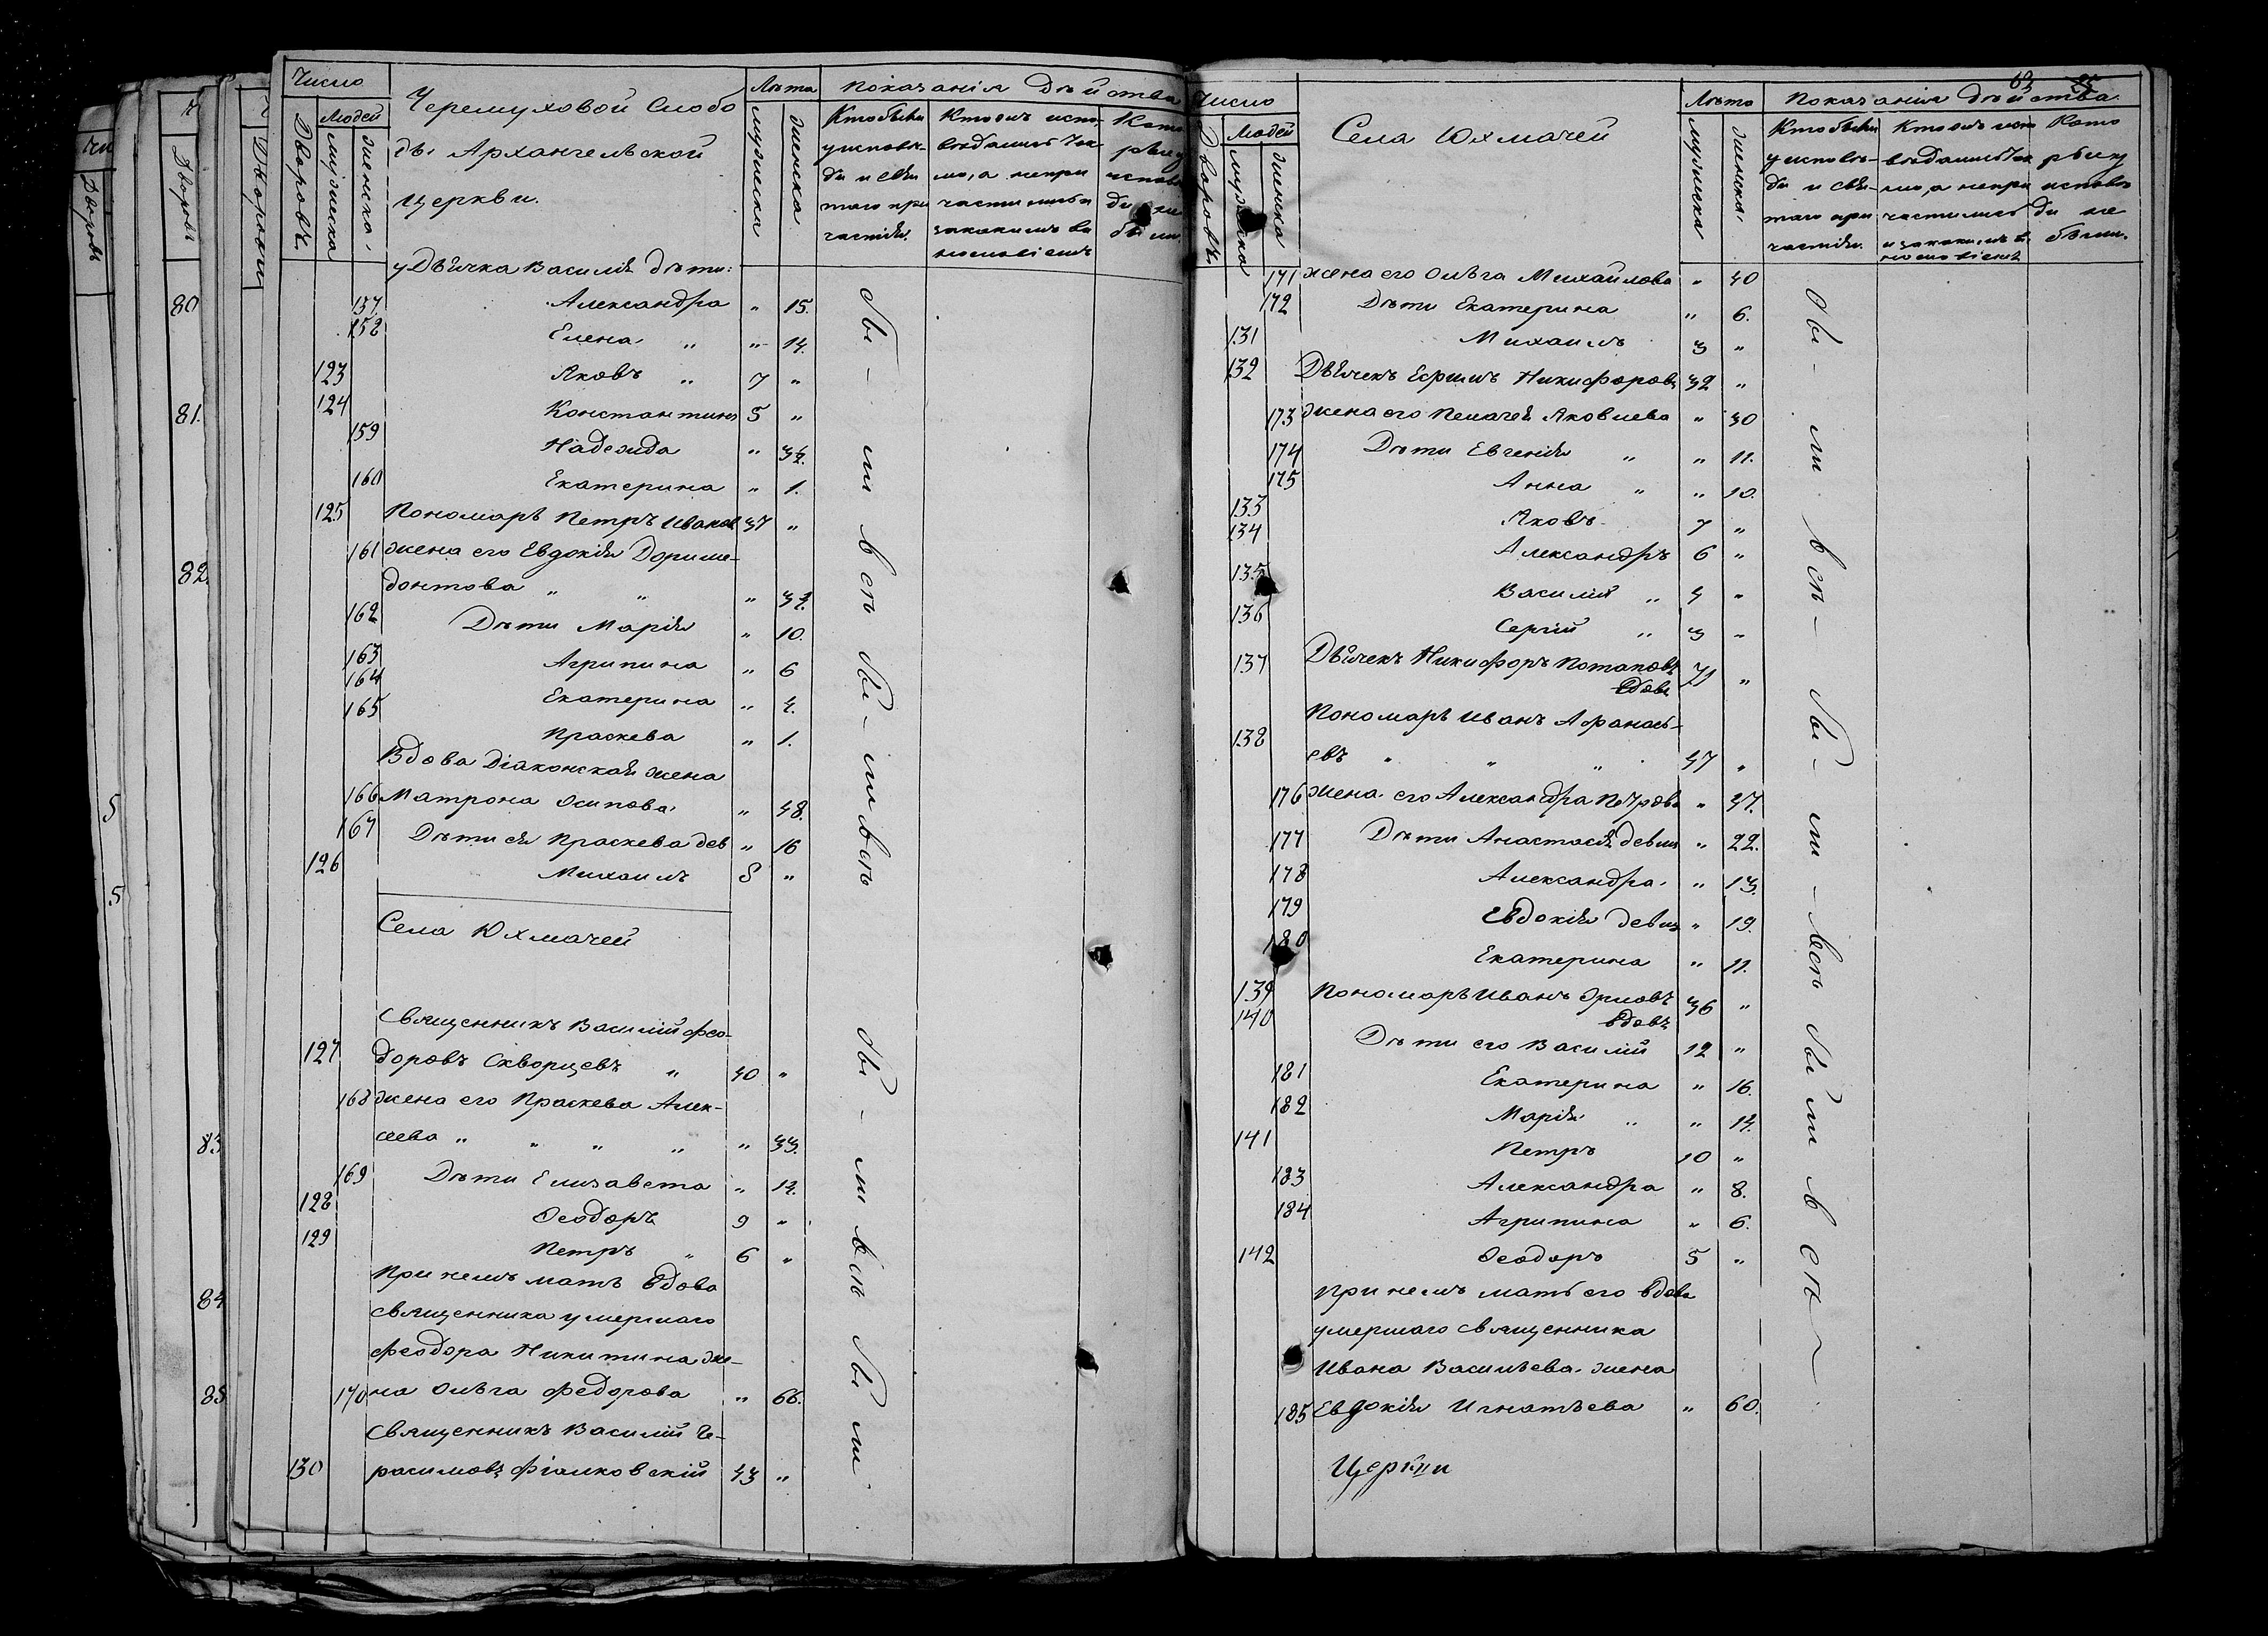 Число
Людей
Дворовъ.
мужеска
женска
Черемуховой Слобо
ды Архангельской
церкви.
Лѣта
мужеска
женска
Показанія действа
Кто были
у исповѣ-
ди и свя
таго при
частія.
Кто онъ испо-
вѣдались ток
мо, а непри
частились и
за какимъ ви
нословіемъ
Кото
рые у
испове
ди не
были.
у Дьячка Василія дѣти:
157 Александра " 15.
158 Елена " " 14.
123 Яковъ " 7 "
124 Константинъ 5 "
159 Надежда "
160 Екатерина " 1.
125 Пономарь Петръ Иванов 37 "
161 жена его Евдокія Дориме-
донтова " " "
162 Дѣти Марія " 10.
163 Агрипина " 6
164 Екатерина " 4.
165 Праскева " 1.
Вдова Діаконская жена
166 Матрона Осипова " 48.
167 Дѣти ея Праскева дев " 16
126 Михаилъ 8 "
Села Юхмачей
Священникъ Василій Фео-
127 доровъ Скворцевъ " 40 "
168 жена его Праскева Алек-
сеева " " " " " 33.
169 Дѣти Елизавета " 14.
128 Феодоръ 9 "
129 Петръ " 6 "
При немъ мать вдова
священника умершаго
Феодора Никитина же-
170 на Ольга Федорова " 66.
Священникъ Василій Ге-
130 расимовъ Фіалковскій 43 "
бы - ли всѣ бы - ли всѣ
бы - ли всѣ бы ли.
80
81.
82.
5
5
83
84
85
63
Число
Людей
Дворовъ.
мужеска
женска
Села Юхмачей
Лѣта
мужеска
женска
Показанія действа.
Кто были
у исповѣ-
ди и свя-
таго при
частія.
Кто онъ испо
вѣдались ток
мо, а непри
частились
и за какимъ ви
нословіемъ
Кото
рые у
исповѣ
ди не
были.
171 жена его Ольга Михайлова " 40
172 Дѣти Екатерина " 6.
131 Михаилъ 3 "
132 Дьячекъ Ефимъ Никифоровъ 32 "
173 жена его Пелагея Яковлева " 30
174 Дѣти Евгенія " " 11.
175 Анна " " 10.
133 Яковъ 7 "
134 Александръ 6 "
135 Василій " 4 "
136 Сергій " 3 "
137 Дьячекъ Никифоръ Потаповъ 71 "
вдовъ
Пономарь Иванъ Афанась-
138 евъ " " " 47 "
176 жена его Александра Петрова " 47.
177 Дѣти Анастасія девиц " 22.
178 Александра " 13.
179 Евдокія девиц " 19.
180 Екатерина " 11.
139 Пономарь Иванъ Орловъ 36 "
вдовъ
140 Дѣти его Василій 12 "
181 Екатерина " 16.
182 Марія " " 14.
141 Петръ 10 "
183 Александра " 8.
184 Агрипина " 6.
142 Феодоръ 5 "
При немъ мать его вдова
умершаго священника
Ивана Васильева жена
185 Евдокія Игнатьева " 60.
Церкви
бы - ли всѣ - бы - ли - всѣ бы ли всѣ